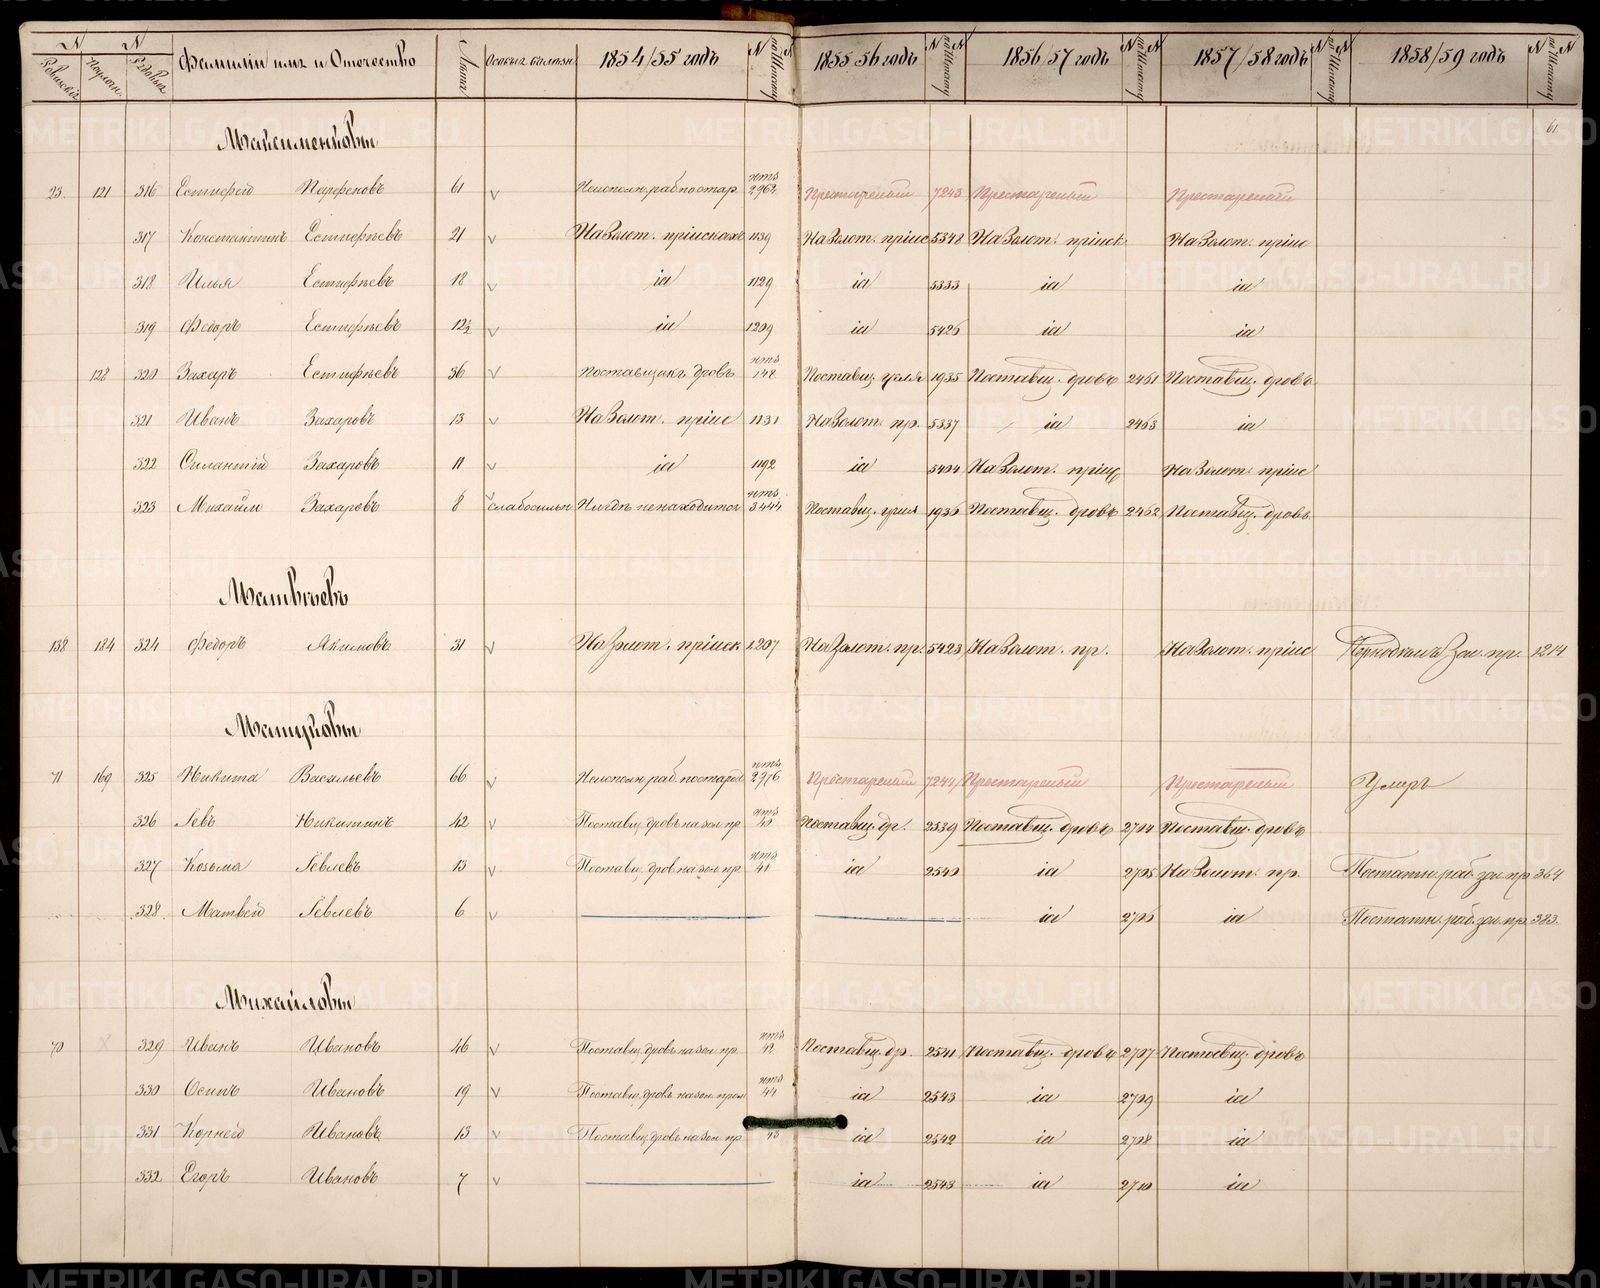 Фамилiи имя и Отечество Лета 1854/55 годъ 1855/56 годъ 1856/57 годъ 1857/58 годъ 1858/59 годъ
61
Максименковы
23 121 316 Естифей Парфеновъ 61 Неисполн. раб по стар. 2962 Престарелый 7243 Престарелый Престарелый
317 Константинъ Естифѣевъ 21 На Золот. прiискахъ 1139 На Золот. прiис 5348 На Золот. прiиск На Золот. прiис
318 Илья Естифѣевъ 18 id 1129 id 5333 id id
319 Федоръ Естифѣевъ 12½ id 1209 id 5425 id id
128 320 Захаръ Естифѣевъ 36 поставщикъ дровъ 142 Поставщ. угля 1935 Поставщ. дровъ 2461 Поставщ. дровъ
321 Иванъ Захаровъ 13 На Золот. прiис 1131 На Золот. пр. 5337 id 2463 id
322 Силантiй Захаровъ 11 id 1192 id 5404 На Золот. прiис На Золот. прiис
323 Михайла Захаровъ 8 слабосильн Нигдѣ не находится 3444 Поставщ. угля 1936 Поставщ. дровъ 2462 Поставщ. дровъ
Матвѣевъ
138 184 324 Федоръ Якимовъ 31 На Золот. прiиск 1207 На Золот. пр. 5423 На Золот. пр. На Золот. прiис зол. пр. 1214
Матуковы
71 169 325 Никита Васильевъ 66 Неисполн. раб. по старос 2976 Престарелый 7244 Престарелый Престарелый Умеръ
326 Левъ Никитинъ 42 Поставщ. дровъ на зол. пр 40 Поставщ. др. 2539 Поставщ. дровъ 2704 Поставщ. дровъ
327 Козьма Лёвлевъ 13 Поставщ. дров на зол. пр. 41 id 2540 id 2705 На Золот. пр. Постатн. раб. зол. пр. 364
328 Матвей Левлевъ 6 id 2706 id Постатн. раб. зол. пр. 383
Михайловы
70 329 Иванъ Ивановъ 46 Поставщ. дровъ на зол. пр. 42 Поставщ. др. 2541 Поставщ. дровъ 2707 Поставщ. дровъ
330 Осипъ Ивановъ 19 Поставщ. дровъ на зол. прiи 44 id 2543 id 2709 id
331 Корней Ивановъ 13 Поставщ. дровъ на зол. пр 43 id 2542 id 2708 id
332 Егоръ Ивановъ 7 id 2543 id 2710 id
METRIKI.GASO-URAL.RU